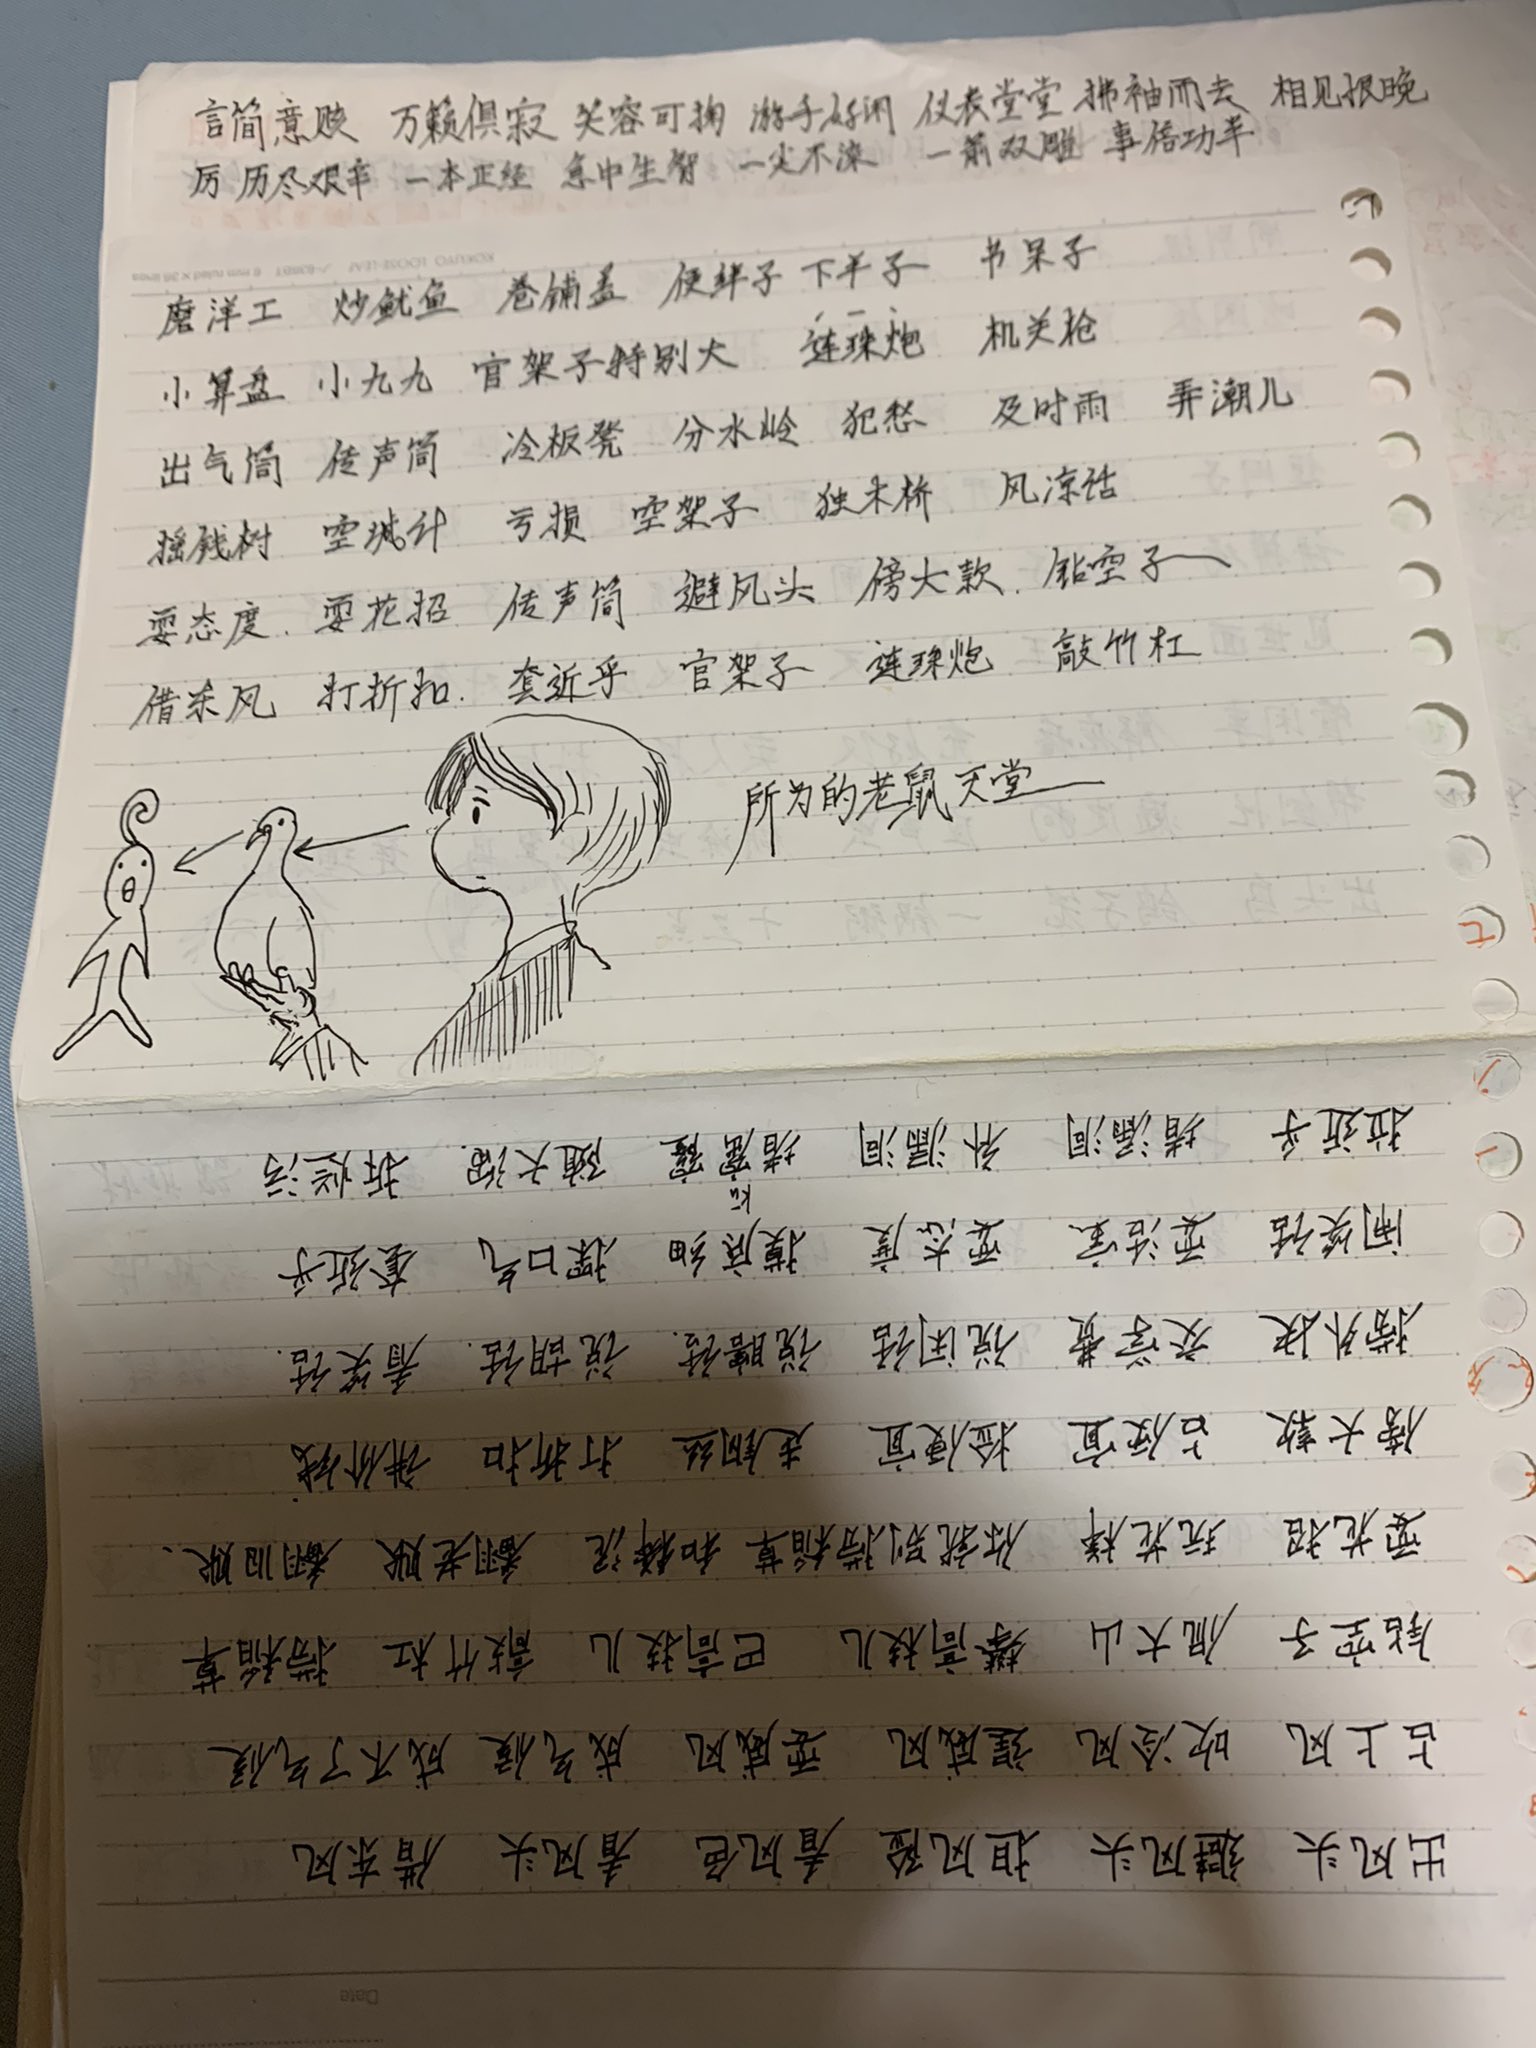 言简意赅 万籁俱寂 笑容可掬 游手好闲 仪表堂堂 拂袖而去 相见恨晚
厉 历尽艰辛 一本正经 急中生智 一尘不染 一箭双雕 事倍功半
KOKUYO LOOSE-LEAF 6 mm ruled × 36 lines
磨洋工 炒鱿鱼 卷铺盖 使绊子 下半子 书呆子
小算盘 小九九 官架子特别大 连珠炮 机关枪
出气筒 传声筒 冷板凳 分水岭 犯愁 及时雨 弄潮儿
摇钱树 空城计 亏损 空架子 独木桥 风凉话
耍态度. 耍花招 传声筒 避风头 傍大款. 钻空子
借东风 打折扣. 套近乎 官架子 连珠炮 敲竹杠
所为的老鼠天堂
出风头 避风头 担风险 看风色 看风头 借东风
占上风 吹冷风 逞威风 耍威风 成气候 成不了气候
钻空子 侃大山 攀高枝儿 巴高枝儿 敲竹杠 捞稻草
耍花招 玩花样 你就别捞稻草 和稀泥 翻老账 翻旧账.
傍大款 占便宜 捡便宜 走钢丝 打折扣 讲价钱.
捞外快 交学费 说闲话 说瞎话. 说胡话. 看笑话.
闹笑话 耍活宝 耍态度 摸底细 探口气 套近乎
拉近乎 堵漏洞 补漏洞 堵窟窿 随大溜. 拆烂污
kū
Date